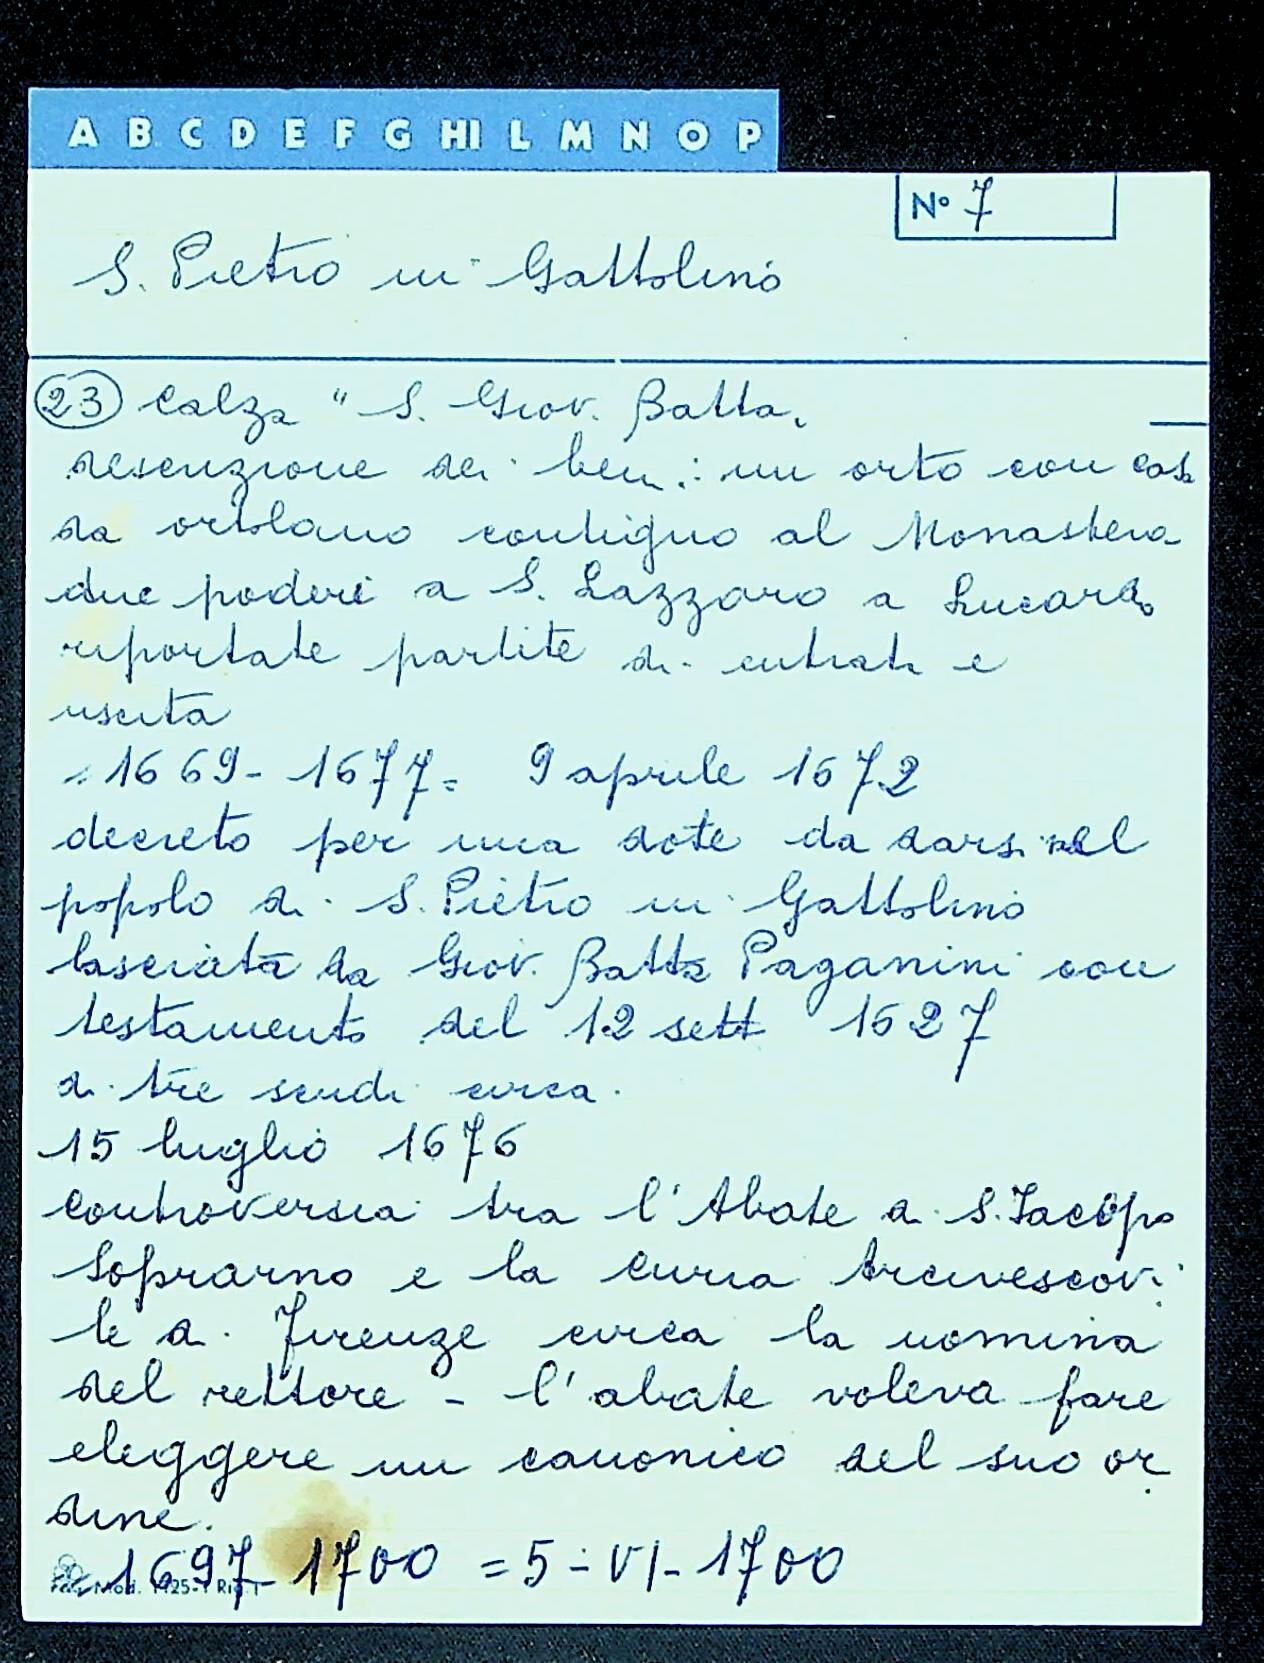 A B C D E F G HI L M N O P
N° 7
S. Pietro in Gattolino
23 Calza " S. Giov. Batta.
descrizione dei beni: un orto con casa
da ortolano contiguo al Monastero
due poderi a S. Lazzaro a Lucardo
riportate partite di entrata e
uscita
= 1669 - 1677 = 9 aprile 1672
decreto per una dote da darsi nel
popolo di S. Pietro in Gattolino
lasciata da Giov. Batta Paganini con
testamento del 12 sett 1627
di tre scudi circa.
15 luglio 1676
controversia tra l'Abate di S. Jacopo
Soprarno e la curia Arcivescovi
le di Firenze circa la nomina
del rettore - l'abate voleva fare
eleggere un canonico del suo or
dine.
= 1697 - 1700 = 5 - VI - 1700
Mod. 1125-1 Rig. 1